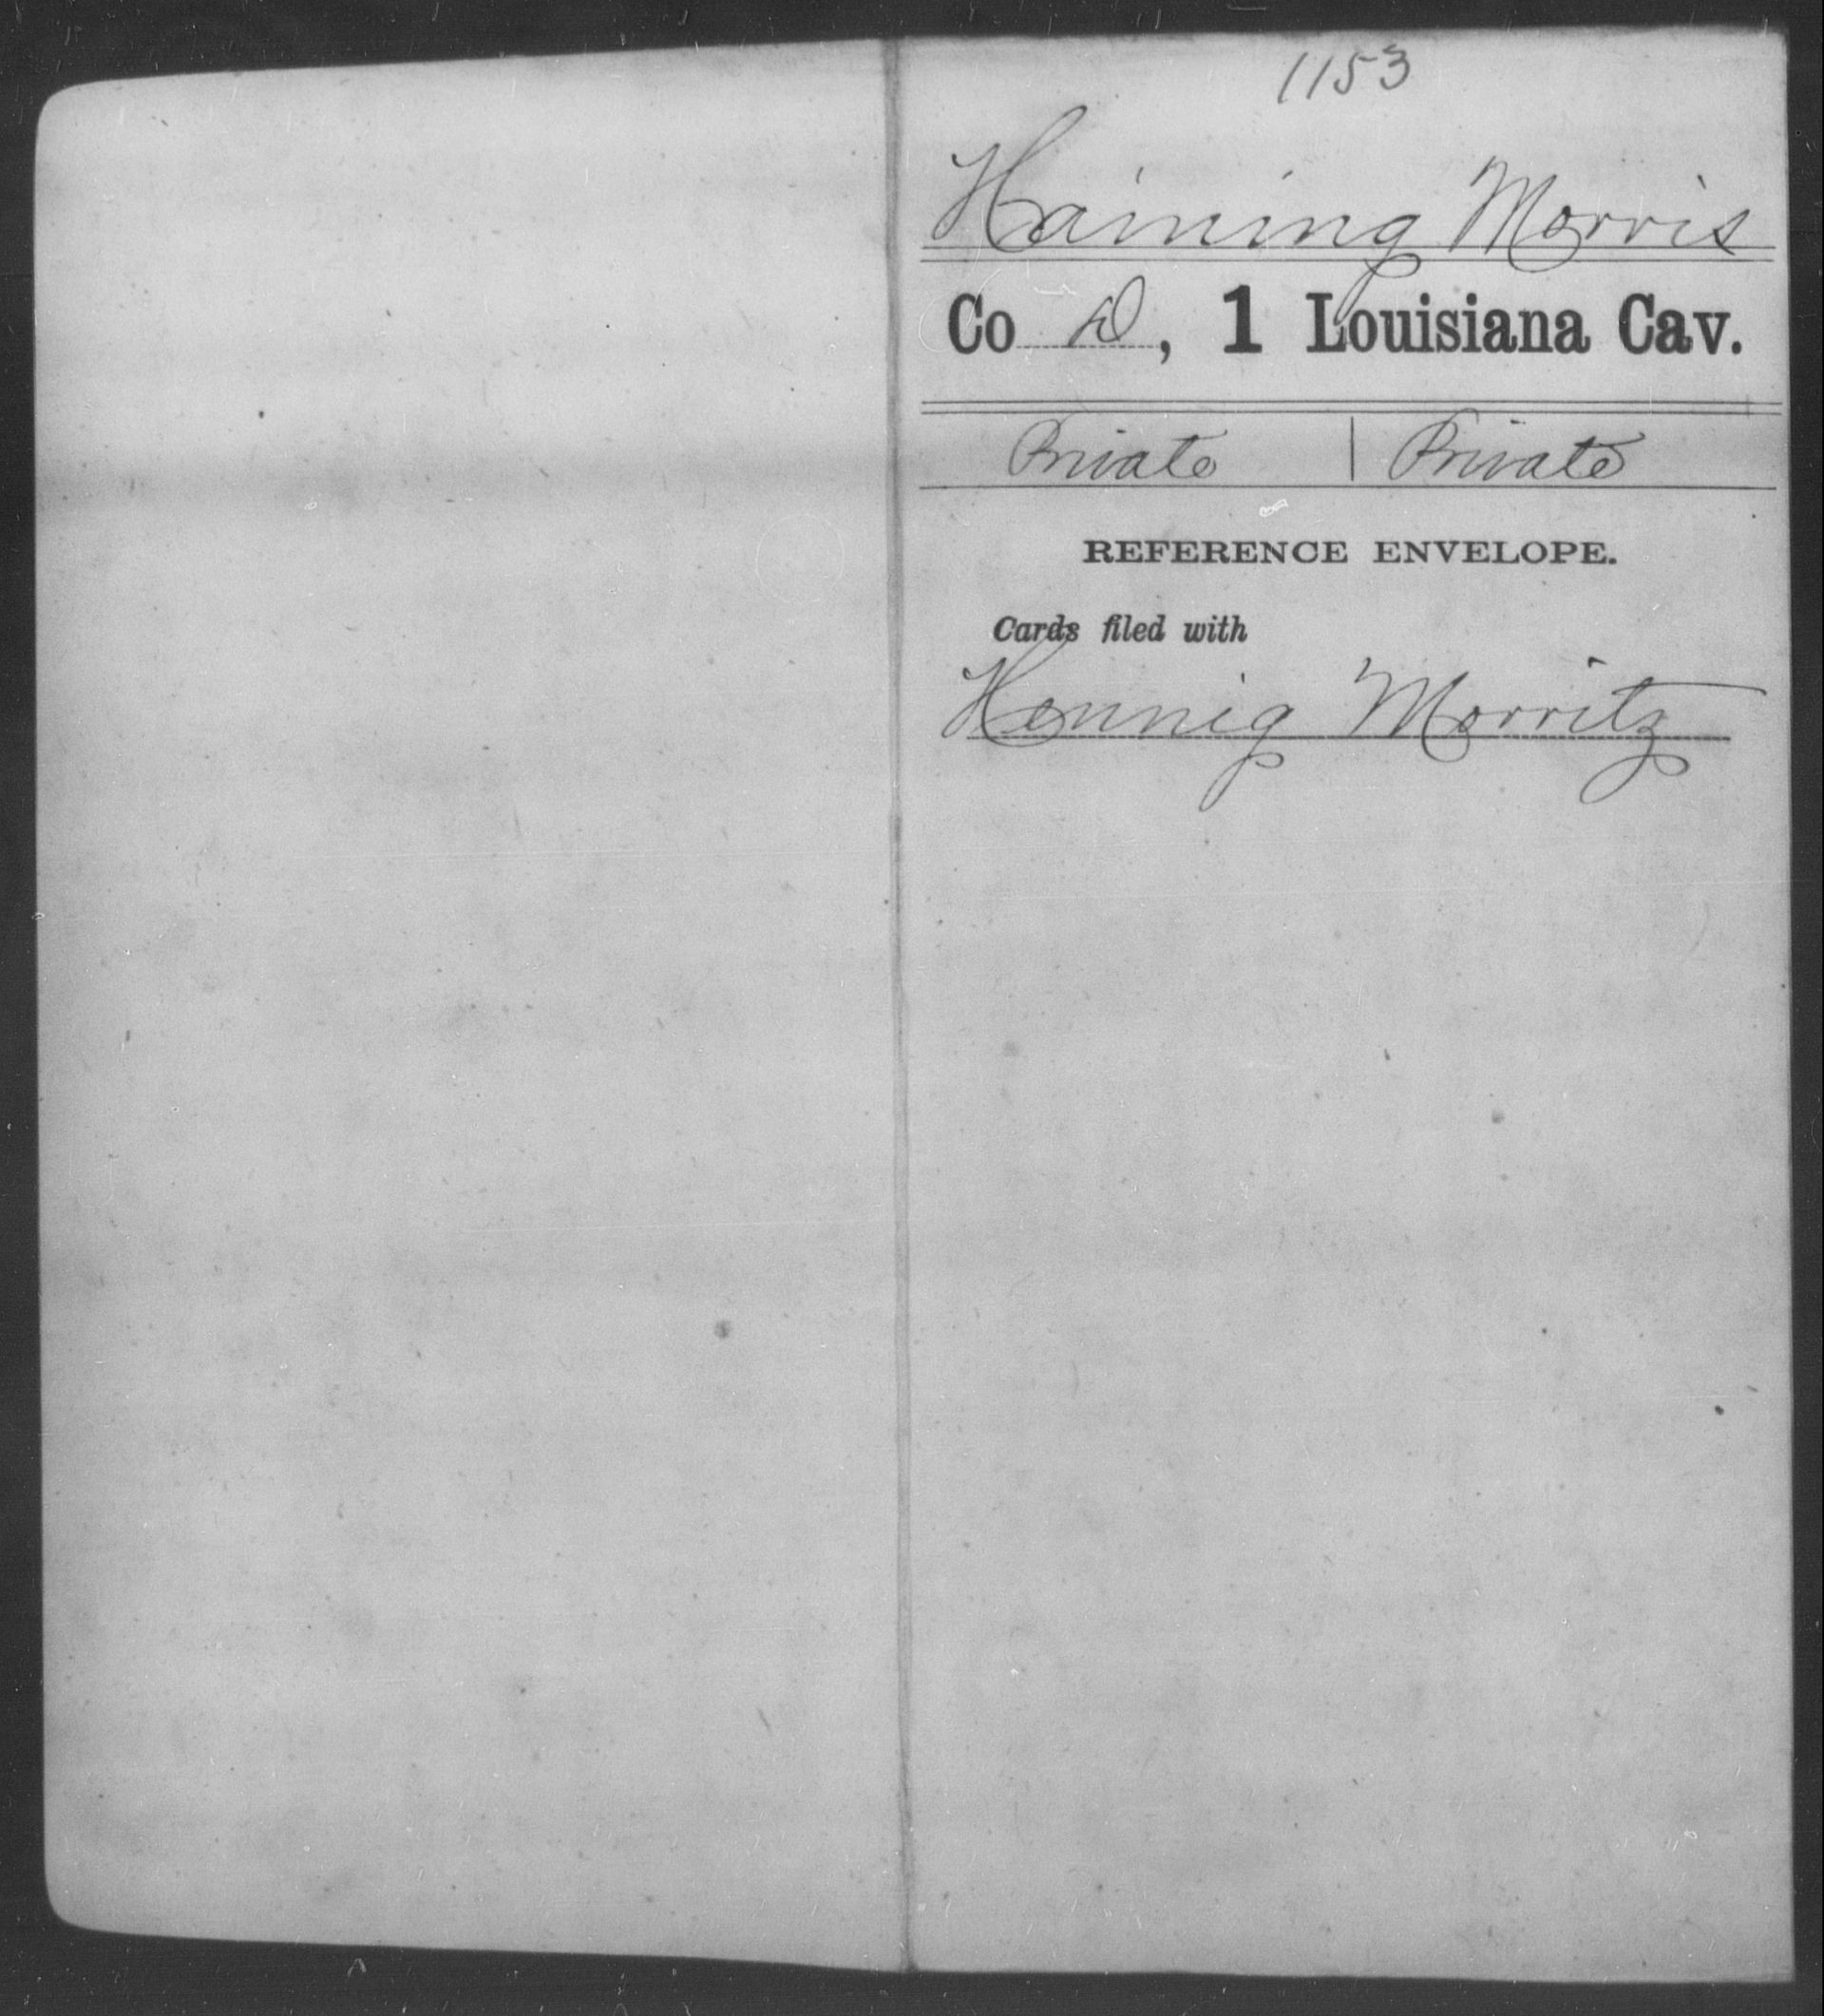 1153
Haining Morris
Co D, 1 Louisiana Cav.
Private | Private
REFERENCE ENVELOPE.
Cards filed with
Hennig Morritz